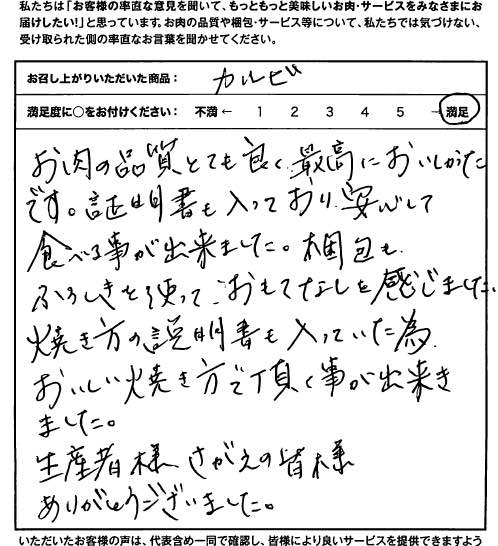 私たちは「お客様の率直な意見を聞いて、もっともっと美味しいお肉・サービスをみなさまにお
届けしたい!」と思っています。お肉の品質や梱包・サービス等について、私たちでは気づけない、
受け取られた側の率直なお言葉を聞かせてください。
お召し上がりいただいた商品： カルビ
満足度に○をお付けください： 不満 ← 1 2 3 4 5 → 満足
お肉の品質とても良く、最高においしかった
です。証明書も入っており、安心して
食べる事が出来ました。梱包も
ふろしきを使って、おもてなしを感じました。
焼き方の説明書も入っていた為、
おいしい焼き方で頂く事が出来き
ました。
生産者様、さがえの皆様
ありがとうございました。
いただいたお客様の声は、代表含め一同で確認し、皆様により良いサービスを提供できますよう